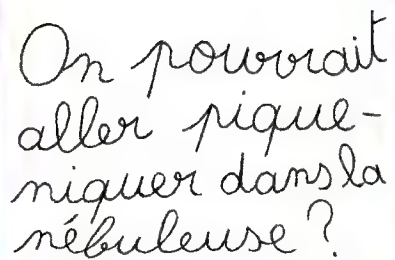 On pourrait
aller pique-
niquer dans la
nébuleuse ?